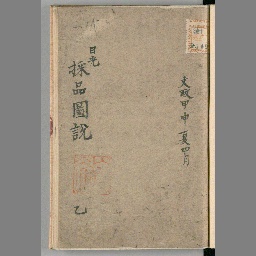 文政甲申夏四月
日光
採品圖說
乙